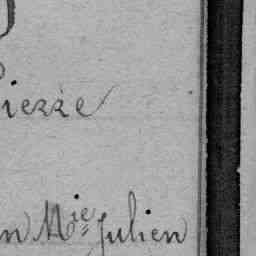 ierre
n Mie Julien